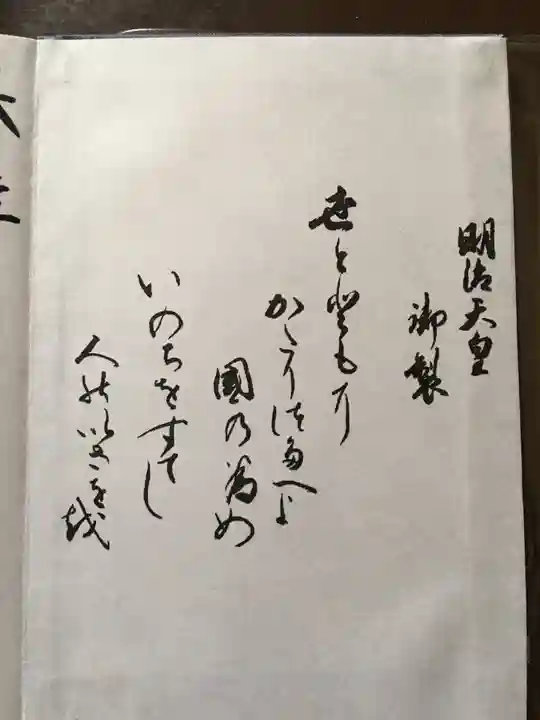 明治天皇
御製
世とともに
かたりつたへよ
國乃為め
いのちをすてし
人のいさを越